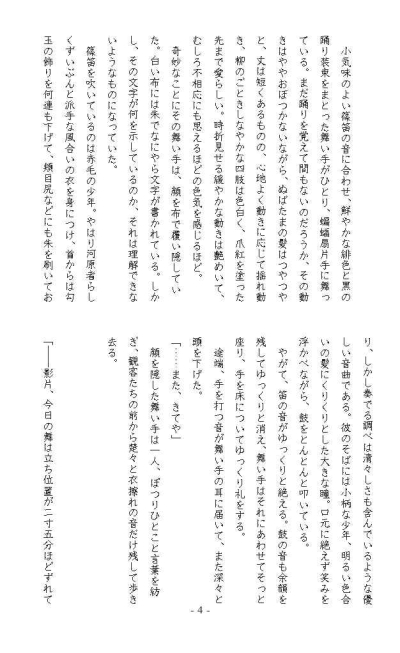 小気味のよい篠笛の音に合わせ、鮮やかな緋色と黒の
踊り装束をまとった舞い手がひとり、蝙蝠扇片手に舞っ
ている。まだ踊りを覚えて間もないのだろうか、その動
きはややおぼつかないながら、ぬばたまの髪はつやつや
と、丈は短くあるものの、心地よく動きに応じて揺れ動
き、柳のごときしなやかな四肢は色白く、爪紅を塗った
先まで愛らしい。時折見せる緩やかな動きは艶めいて、
むしろ不相応にも思えるほどの色気を感じるほど。
奇妙なことにその舞い手は、顔を布で覆い隠してい
た。白い布には朱でなにやら文字が書かれている。しか
し、その文字が何を示しているのか、それは理解できな
いようなものになっていた。
篠笛を吹いているのは赤毛の少年。やはり河原者らし
くずいぶんと派手な風合いの衣を身につけ、首からは勾
玉の飾りを何連も下げて、頬目尻などにも朱を刷いてお
り、しかし奏でる調べは清々しさも含んでいるような優
しい音曲である。彼のそばには小柄な少年、明るい色合
いの髪にくりくりとした大きな瞳。口元に絶えず笑みを
浮かべながら、鼓をとんとんと叩いている。
やがて、笛の音がゆっくりと絶える。鼓の音も余韻を
残してゆっくりと消え、舞い手はそれにあわせてそっと
座り、手を床についてゆっくり礼をする。
途端、手を打つ音が舞い手の耳に届いて、また深々と
頭を下げた。
「……また、きてや」
顔を隠した舞い手は一人、ぽつりひとこと言葉を紡
ぎ、観客たちの前から楚々と衣擦れの音だけ残して歩き
去る。
「――影片、今日の舞は立ち位置が二寸五分ほどずれて
- 4 -